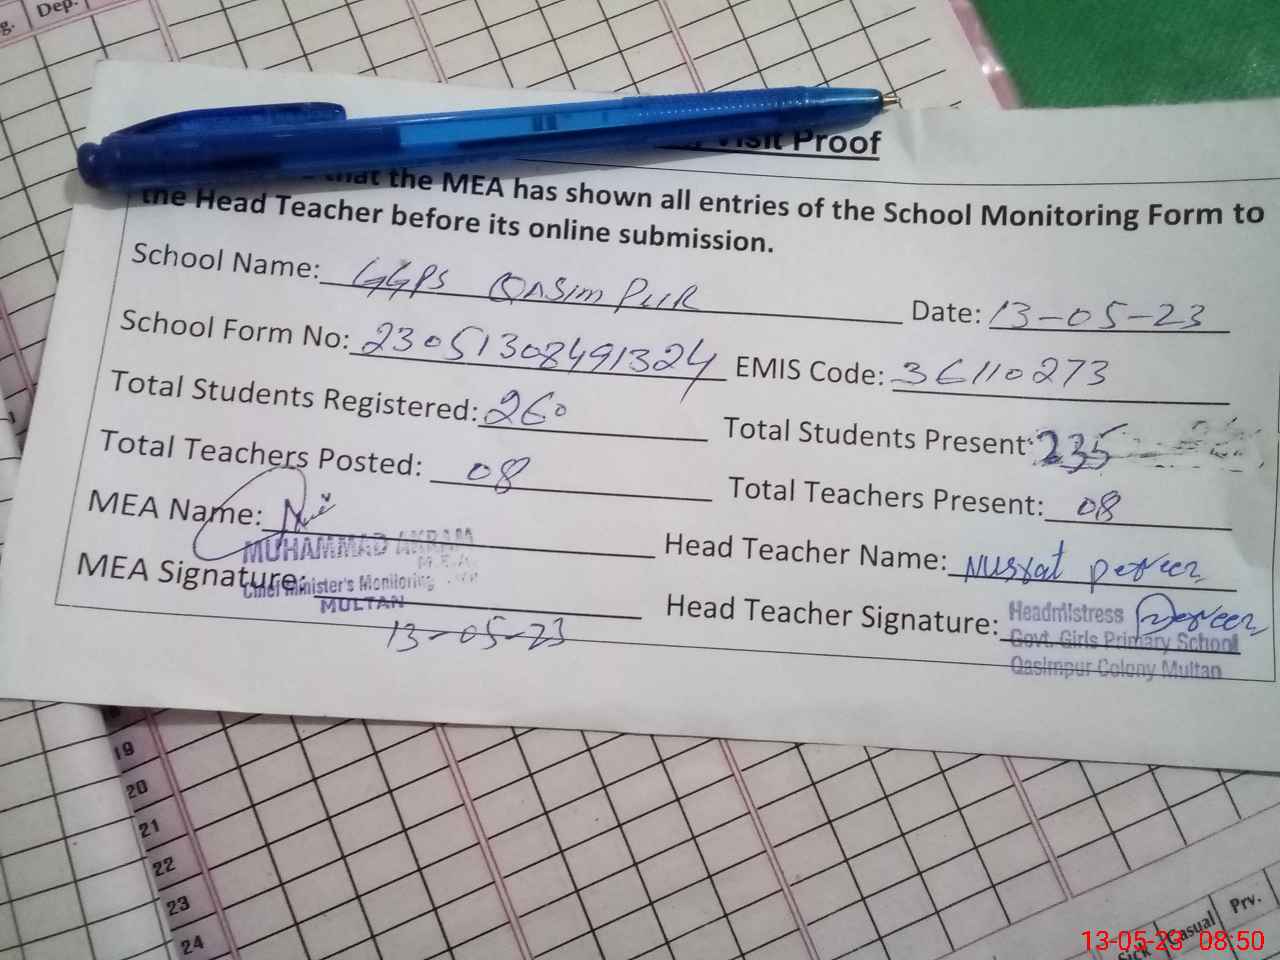 g. Dep.
Visit Proof
that the MEA has shown all entries of the School Monitoring Form to
the Head Teacher before its online submission.
School Name: GGPS QASim PUR Date: 13-05-23
School Form No: 23051308491324 EMIS Code: 36110273
Total Students Registered: 260 Total Students Present: 235
Total Teachers Posted: 08 Total Teachers Present: 08
MEA Name: Head Teacher Name: Nusrat perveen
MUHAMMAD AKRAM
M.E.A.
MEA Signature: Head Teacher Signature:
Chief Minister's Monitoring
MULTAN
13-05-23
Headmistress
Govt. Girls Primary School
Qasimpur Colony Multan
19
20
21
22
23
24
Sick Casual Prv.
13-05-23 08:50